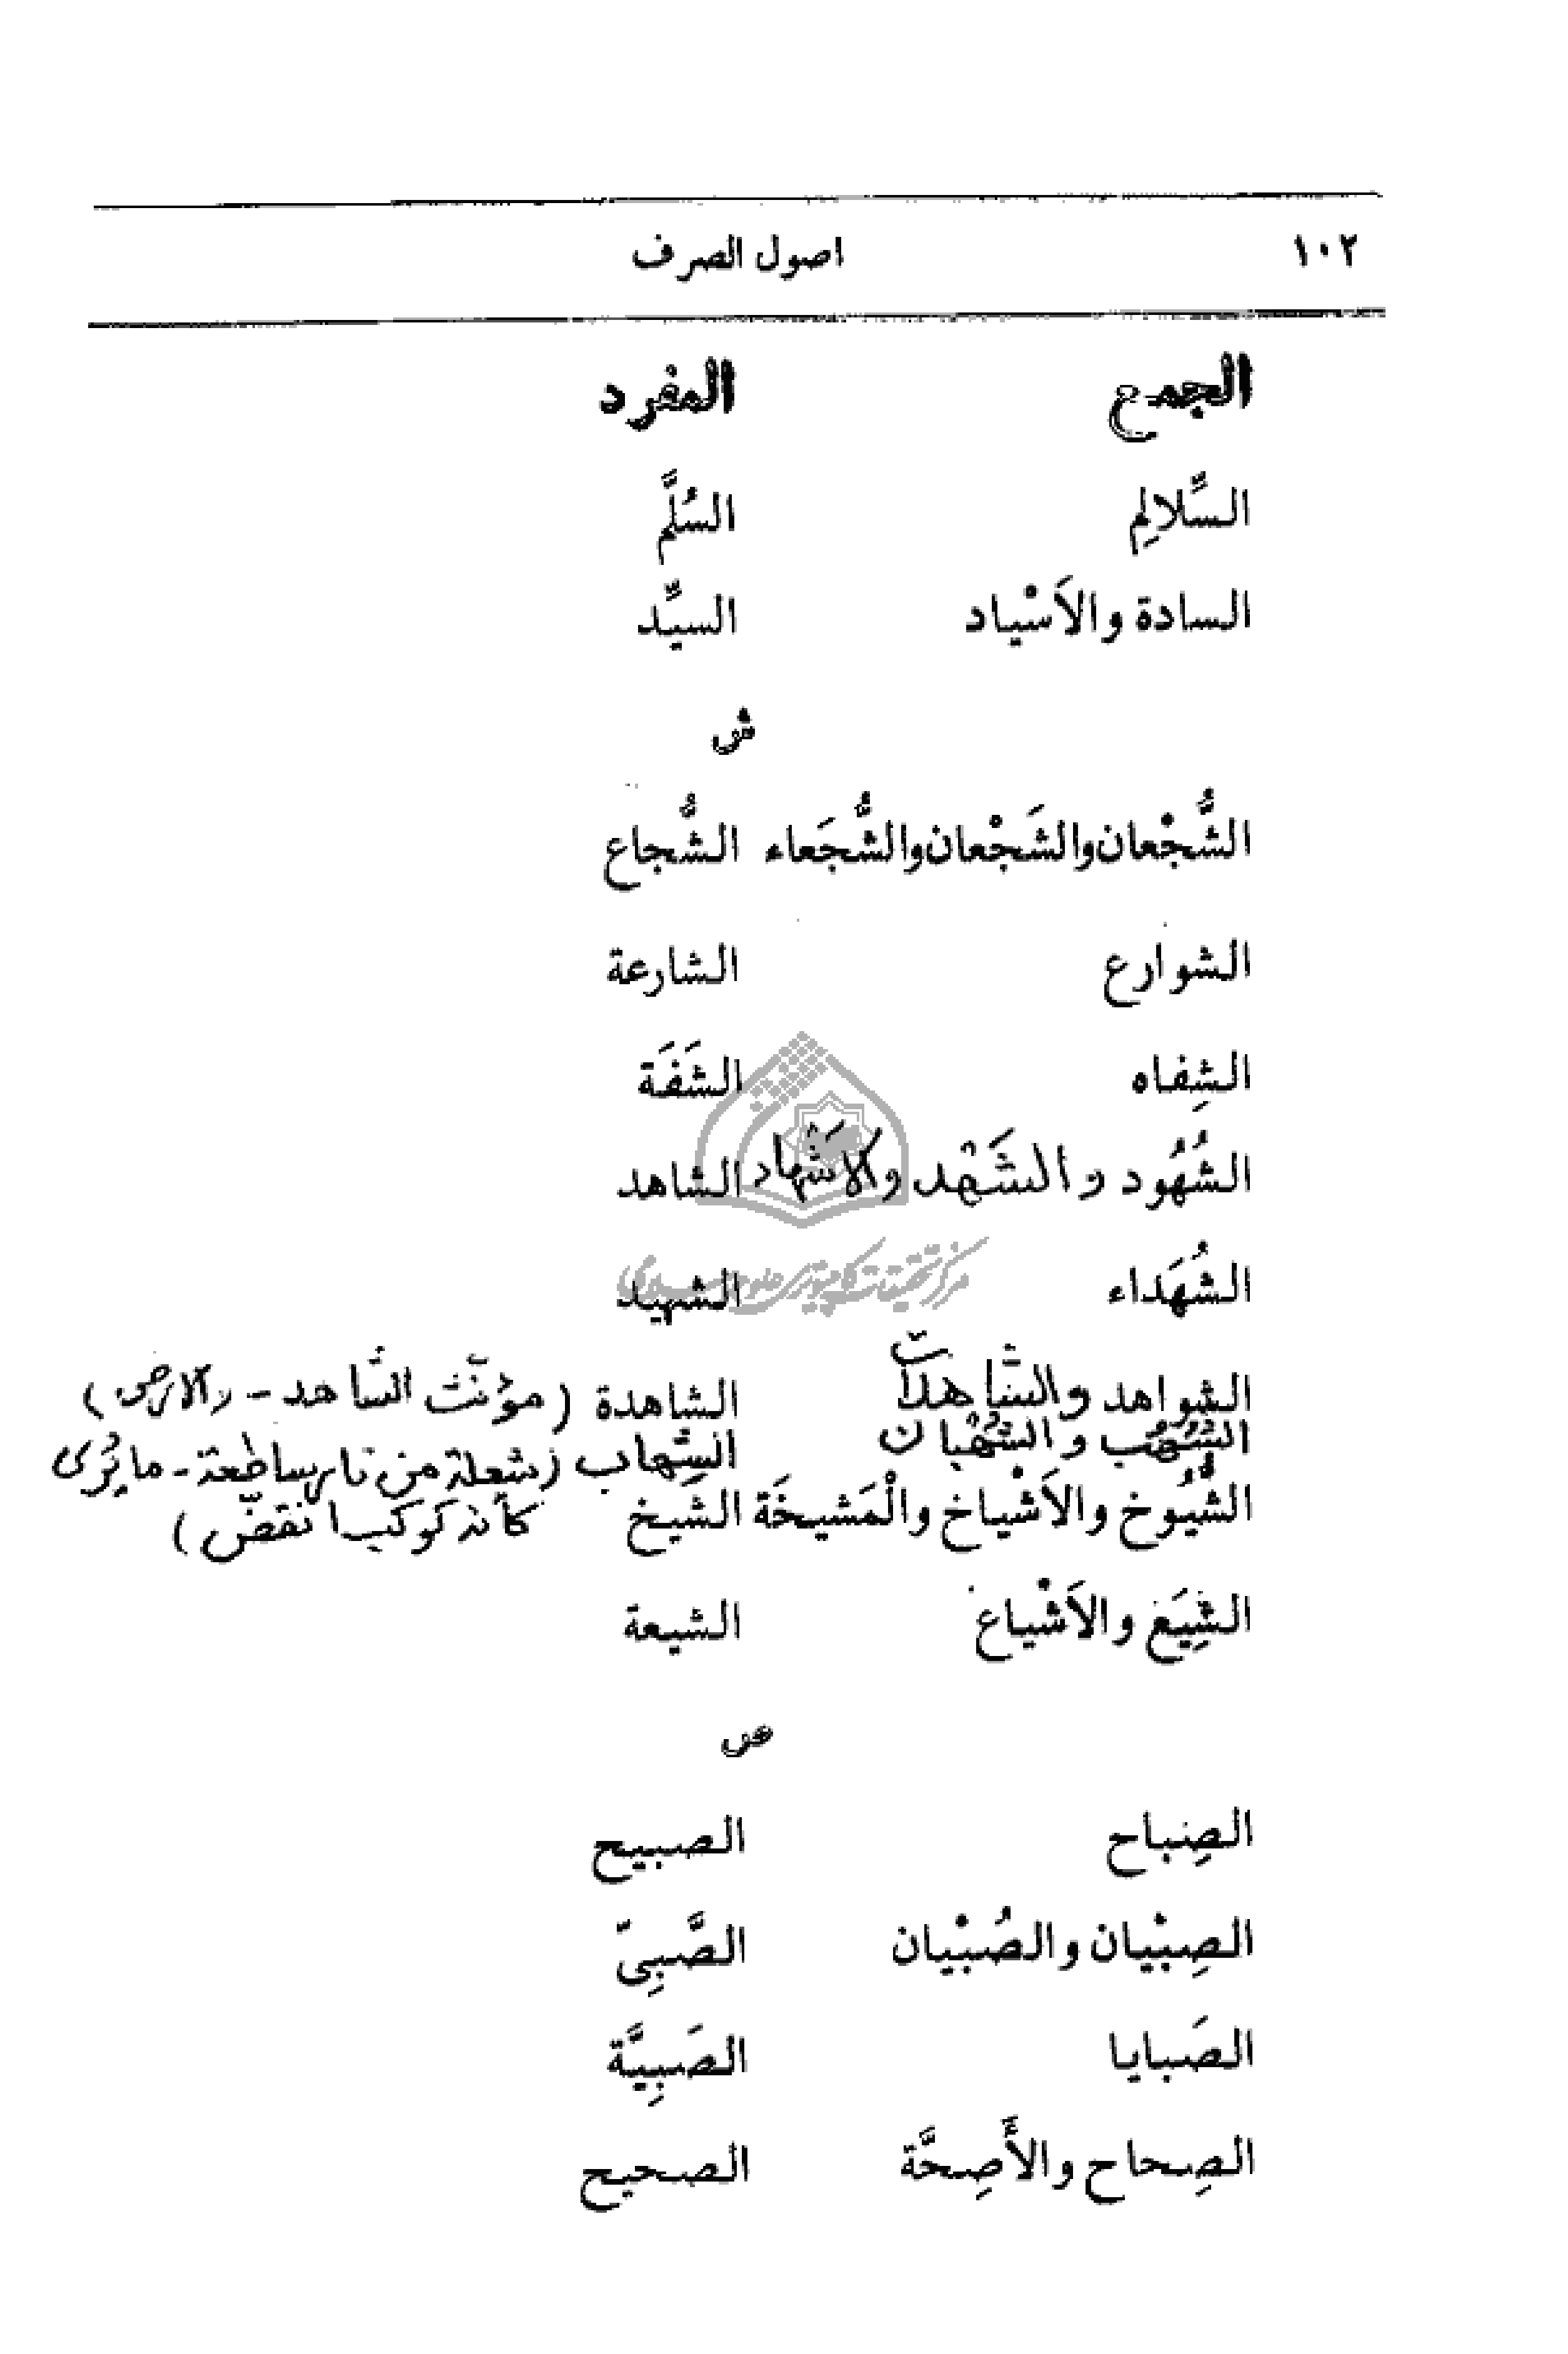 ١٠٢ اصول الصرف
الجمع المفرد
السَّلالِم السُلَّم
السادة والاَسْياد السيِّد
ش
الشُّجْعان والشَجْعان والشُّجَعاء الشُّجاع
الشوارع الشارعة
الشِفاه الشَفَة
الشُهُود والشَهْد والاَشْهاد الشاهد
الشُهَداء الشهيد
الشواهد والشاهدات الشاهدة (مؤنّث الشاهد - الارض)
الشُهُب والشُهْبان الشِهاب (شعلة من نار ساطعة - ما يُرى
كأنه كوكب انقضّ)
الشُّيُوخ والاَشْياخ والْمَشيخَة الشَيخ
الشِيَع والاَشْياع الشيعة
ص
الصِباح الصبيح
الصِبْيان والصُبْيان الصَّبِىّ
الصَبايا الصَبِيَّة
الصِحاح والأَصِحَّة الصحيح
مركز تحقيقات كامپيوتري علوم اسلامي